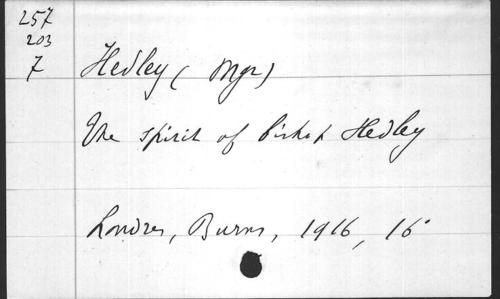 257
203
7
Hedley (Mgr)
The spirit of Bishop Hedley
Londres, Burns, 1916, 16°